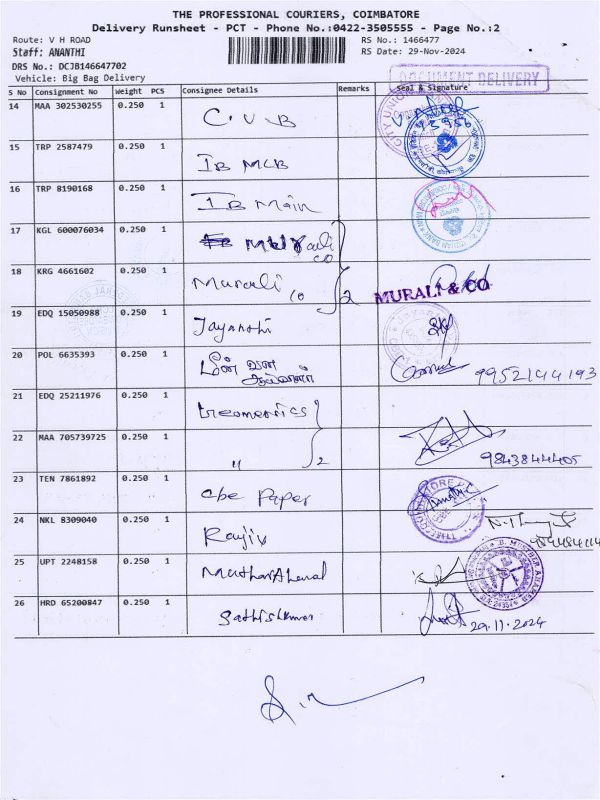 THE PROFESSIONAL COURIERS, COIMBATORE
Delivery Runsheet - PCT - Phone No.:0422-3505555 - Page No.:2
Route: V H ROAD RS No.: 1466477
Staff: ANANTHI RS Date: 29-Nov-2024
DRS No.: DCJB146647702
Vehicle: Big Bag Delivery
DOCUMENT DELIVERY
S No Consignment No Weight PCS Consignee Details Remarks Seal & Signature
14 MAA 302530255 0.250 1 C.U.B
15 TRP 2587479 0.250 1 IB MCB
16 TRP 8190168 0.250 1 IB Main
17 KGL 600076034 0.250 1 Murali co
18 KRG 4661602 0.250 1 Murali co 2 MURALI & CO
19 EDQ 15050988 0.250 1 Jayanthi
20 POL 6635393 0.250 1 மீன் வள 9952144193
21 EDQ 25211976 0.250 1
22 MAA 705739725 0.250 1 " 2 9843844405
23 TEN 7861892 0.250 1 cbe Paper
24 NKL 8309040 0.250 1 Rajiv
25 UPT 2248158 0.250 1
26 HRD 65200847 0.250 1 Sathishkumar 29.11.2024